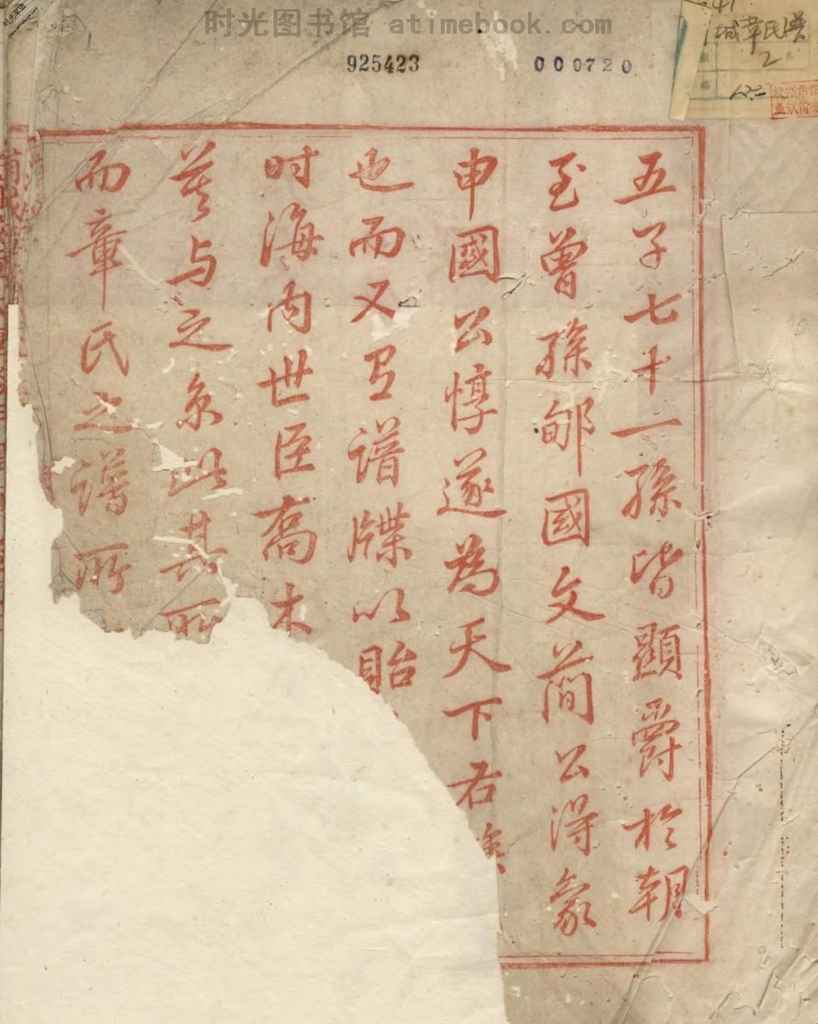 时光图书馆 atimebook.com
925423
000720
五子七十一孫皆顯爵於朝
至曾孫郇國文蕳公淂象
申國公惇遂為天下右族
也而又有譜牒以貽
时海内世臣喬木
莫与之京此其所
而章氏之譜所